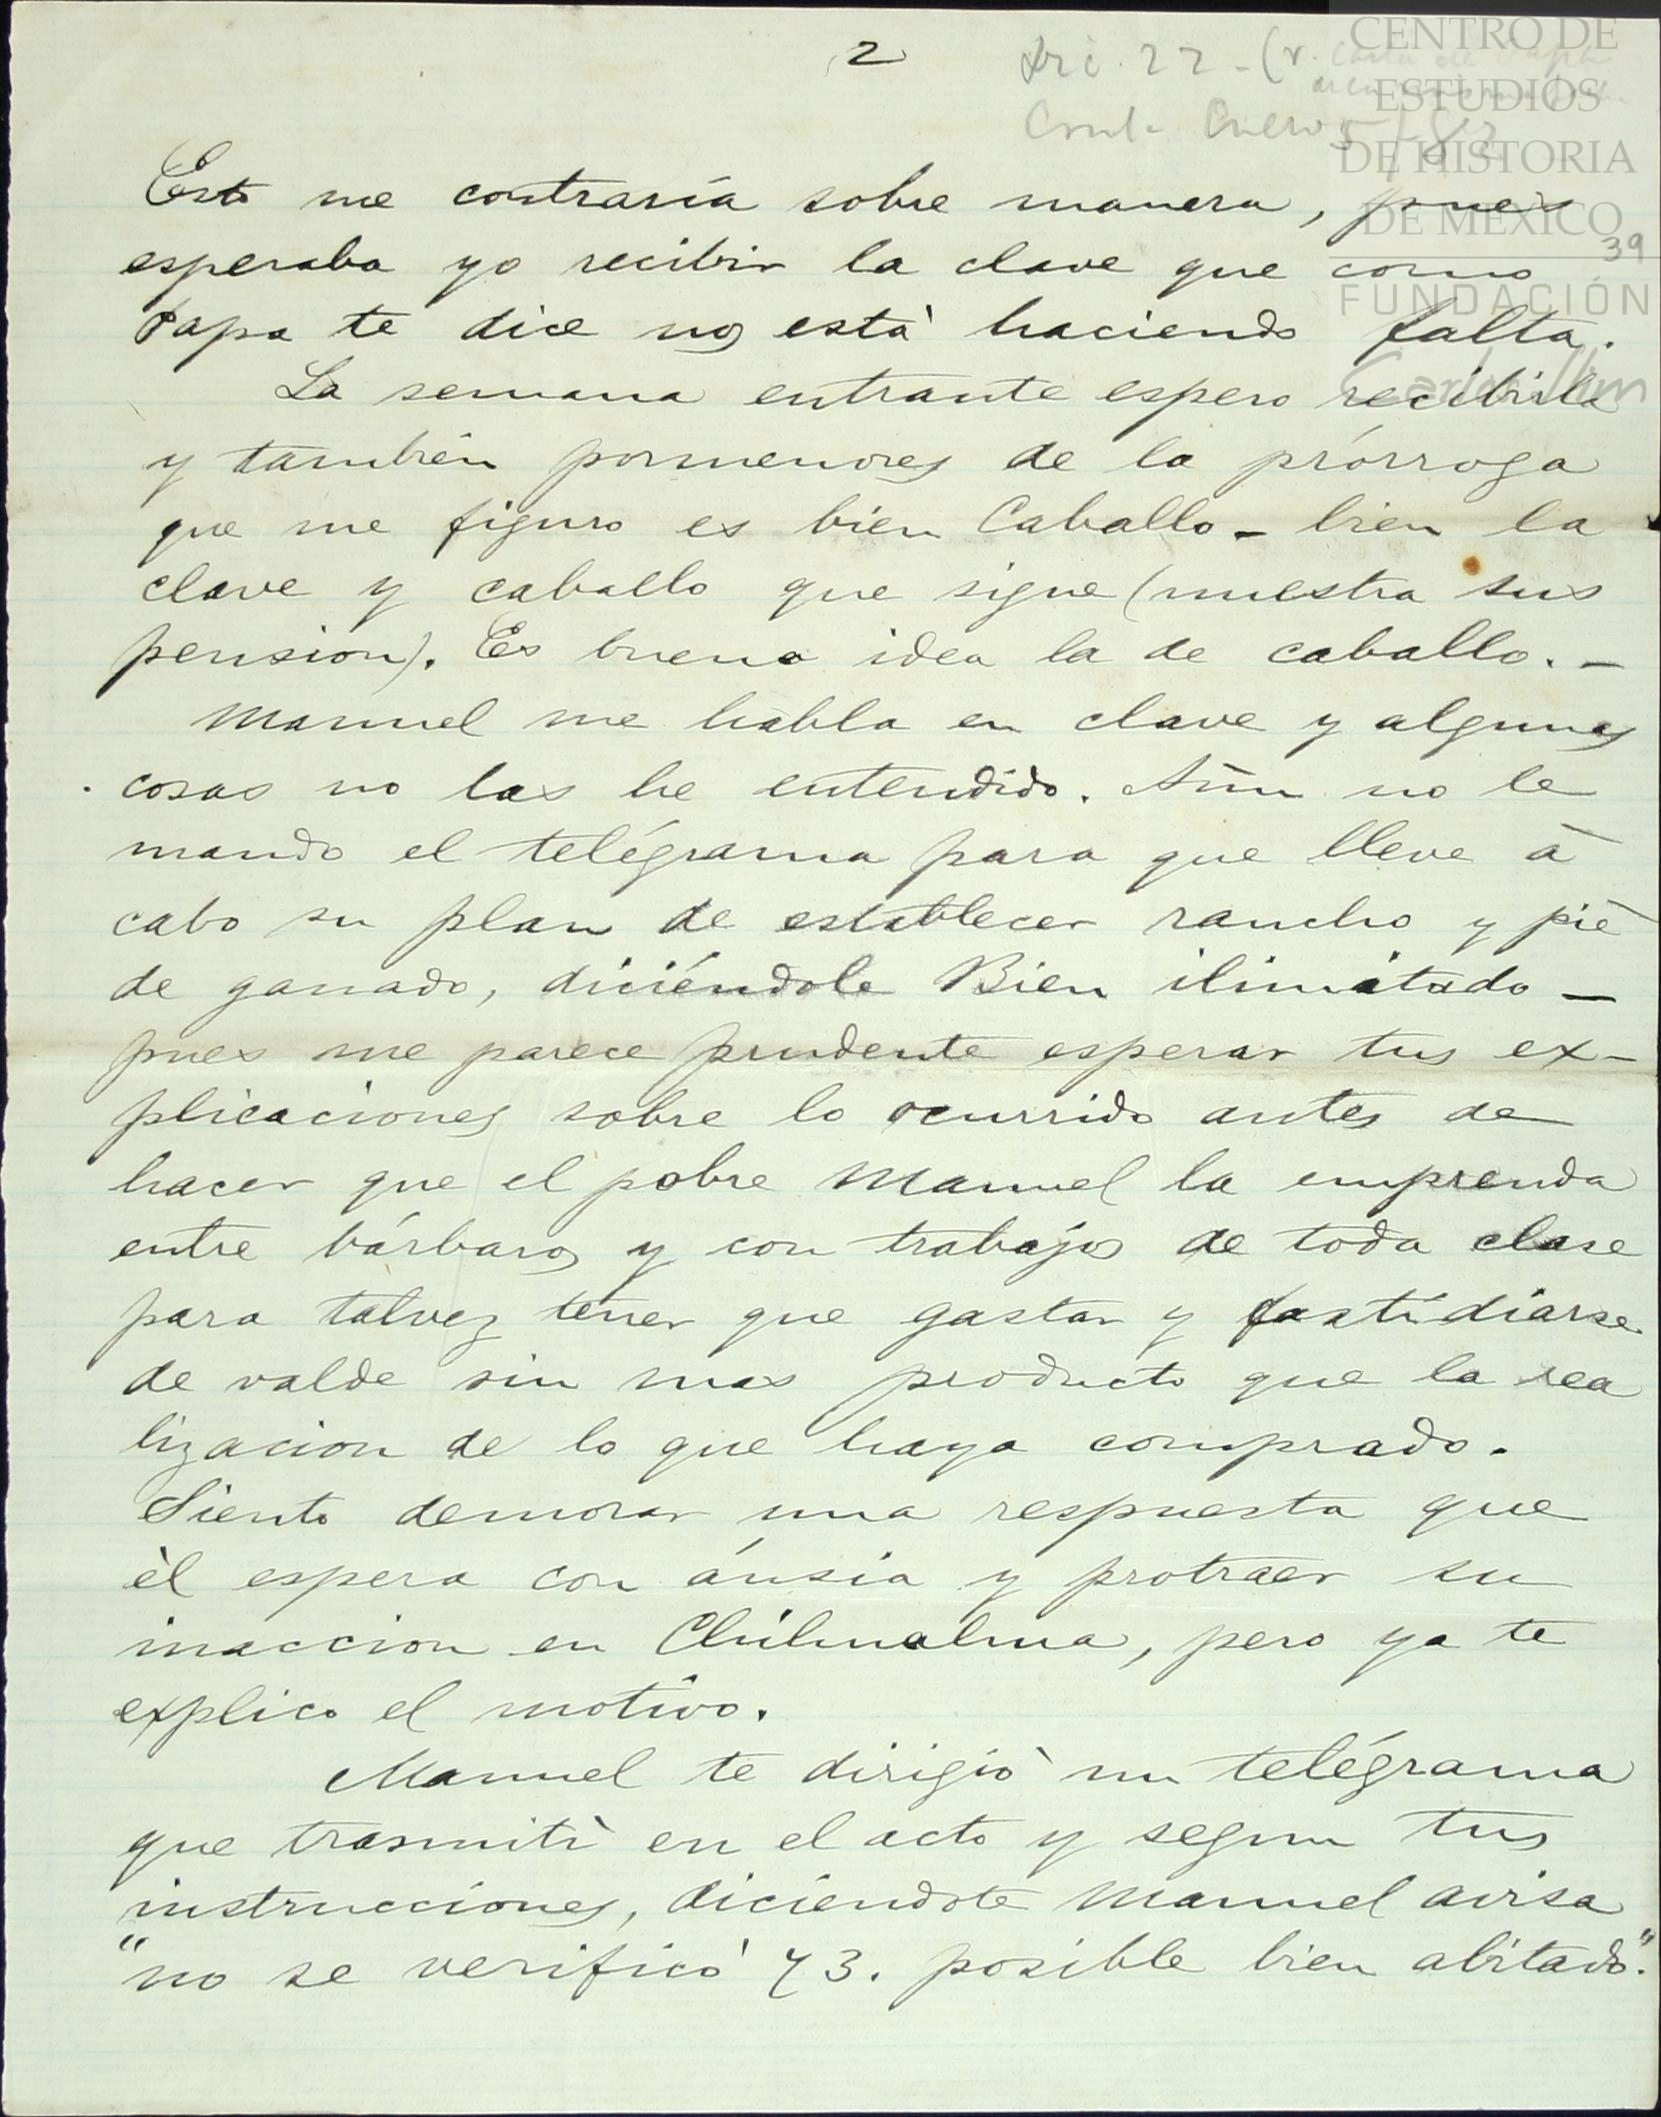 2
Dic. 22 - (v. Carta de Papá
Cont. Enero 5/82
CENTRO DE
ESTUDIOS
DE HISTORIA
DE MÉXICO
39
FUNDACIÓN
Carlos Slim
Esto me contraría sobre manera, pues
esperaba yo recibir la clave que como
Papa te dice nos está haciendo falta.
La semana entrante espero recibirla
y también pormenores de la prórroga
que me figuro es bien Caballo - bien la
clave y caballo que sigue (nuestra sus
pension). Es buena idea la de caballo. -
Manuel me habla en clave y algunas
cosas no las he entendido. Aún no le
mando el telégrama para que lleve á
cabo su plan de establecer rancho y pié
de ganado, diciéndole Bien ilimitado -
pues me parece prudente esperar tus ex-
plicaciones sobre lo ocurrido antes de
hacer que el pobre Manuel la emprenda
entre bárbaros y con trabajos de toda clase
para talvez tener que gastar y fastidiarse
de valde sin mas producto que la rea
lizacion de lo que haya comprado.
Siento demorar una respuesta que
él espera con ánsia y protraer su
inaccion en Chihuahua, pero ya te
explico el motivo.
Manuel te dirigió un telégrama
que trasmití en el acto y segun tus
instrucciones, diciendote Manuel avisa
"no se verificó 73. posible bien abitado."